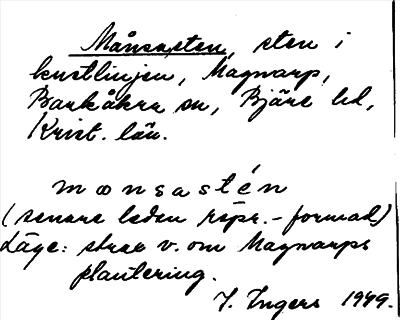 Månsasten, sten i
kustlinjen, Magnarp,
Barkåkra sn, Bjäre hd,
Krist. län.
mɷnsastén
(senare leden röpr.-formad)
Läge: strax v. om Magnarps
plantering.
I. Ingers 1949.